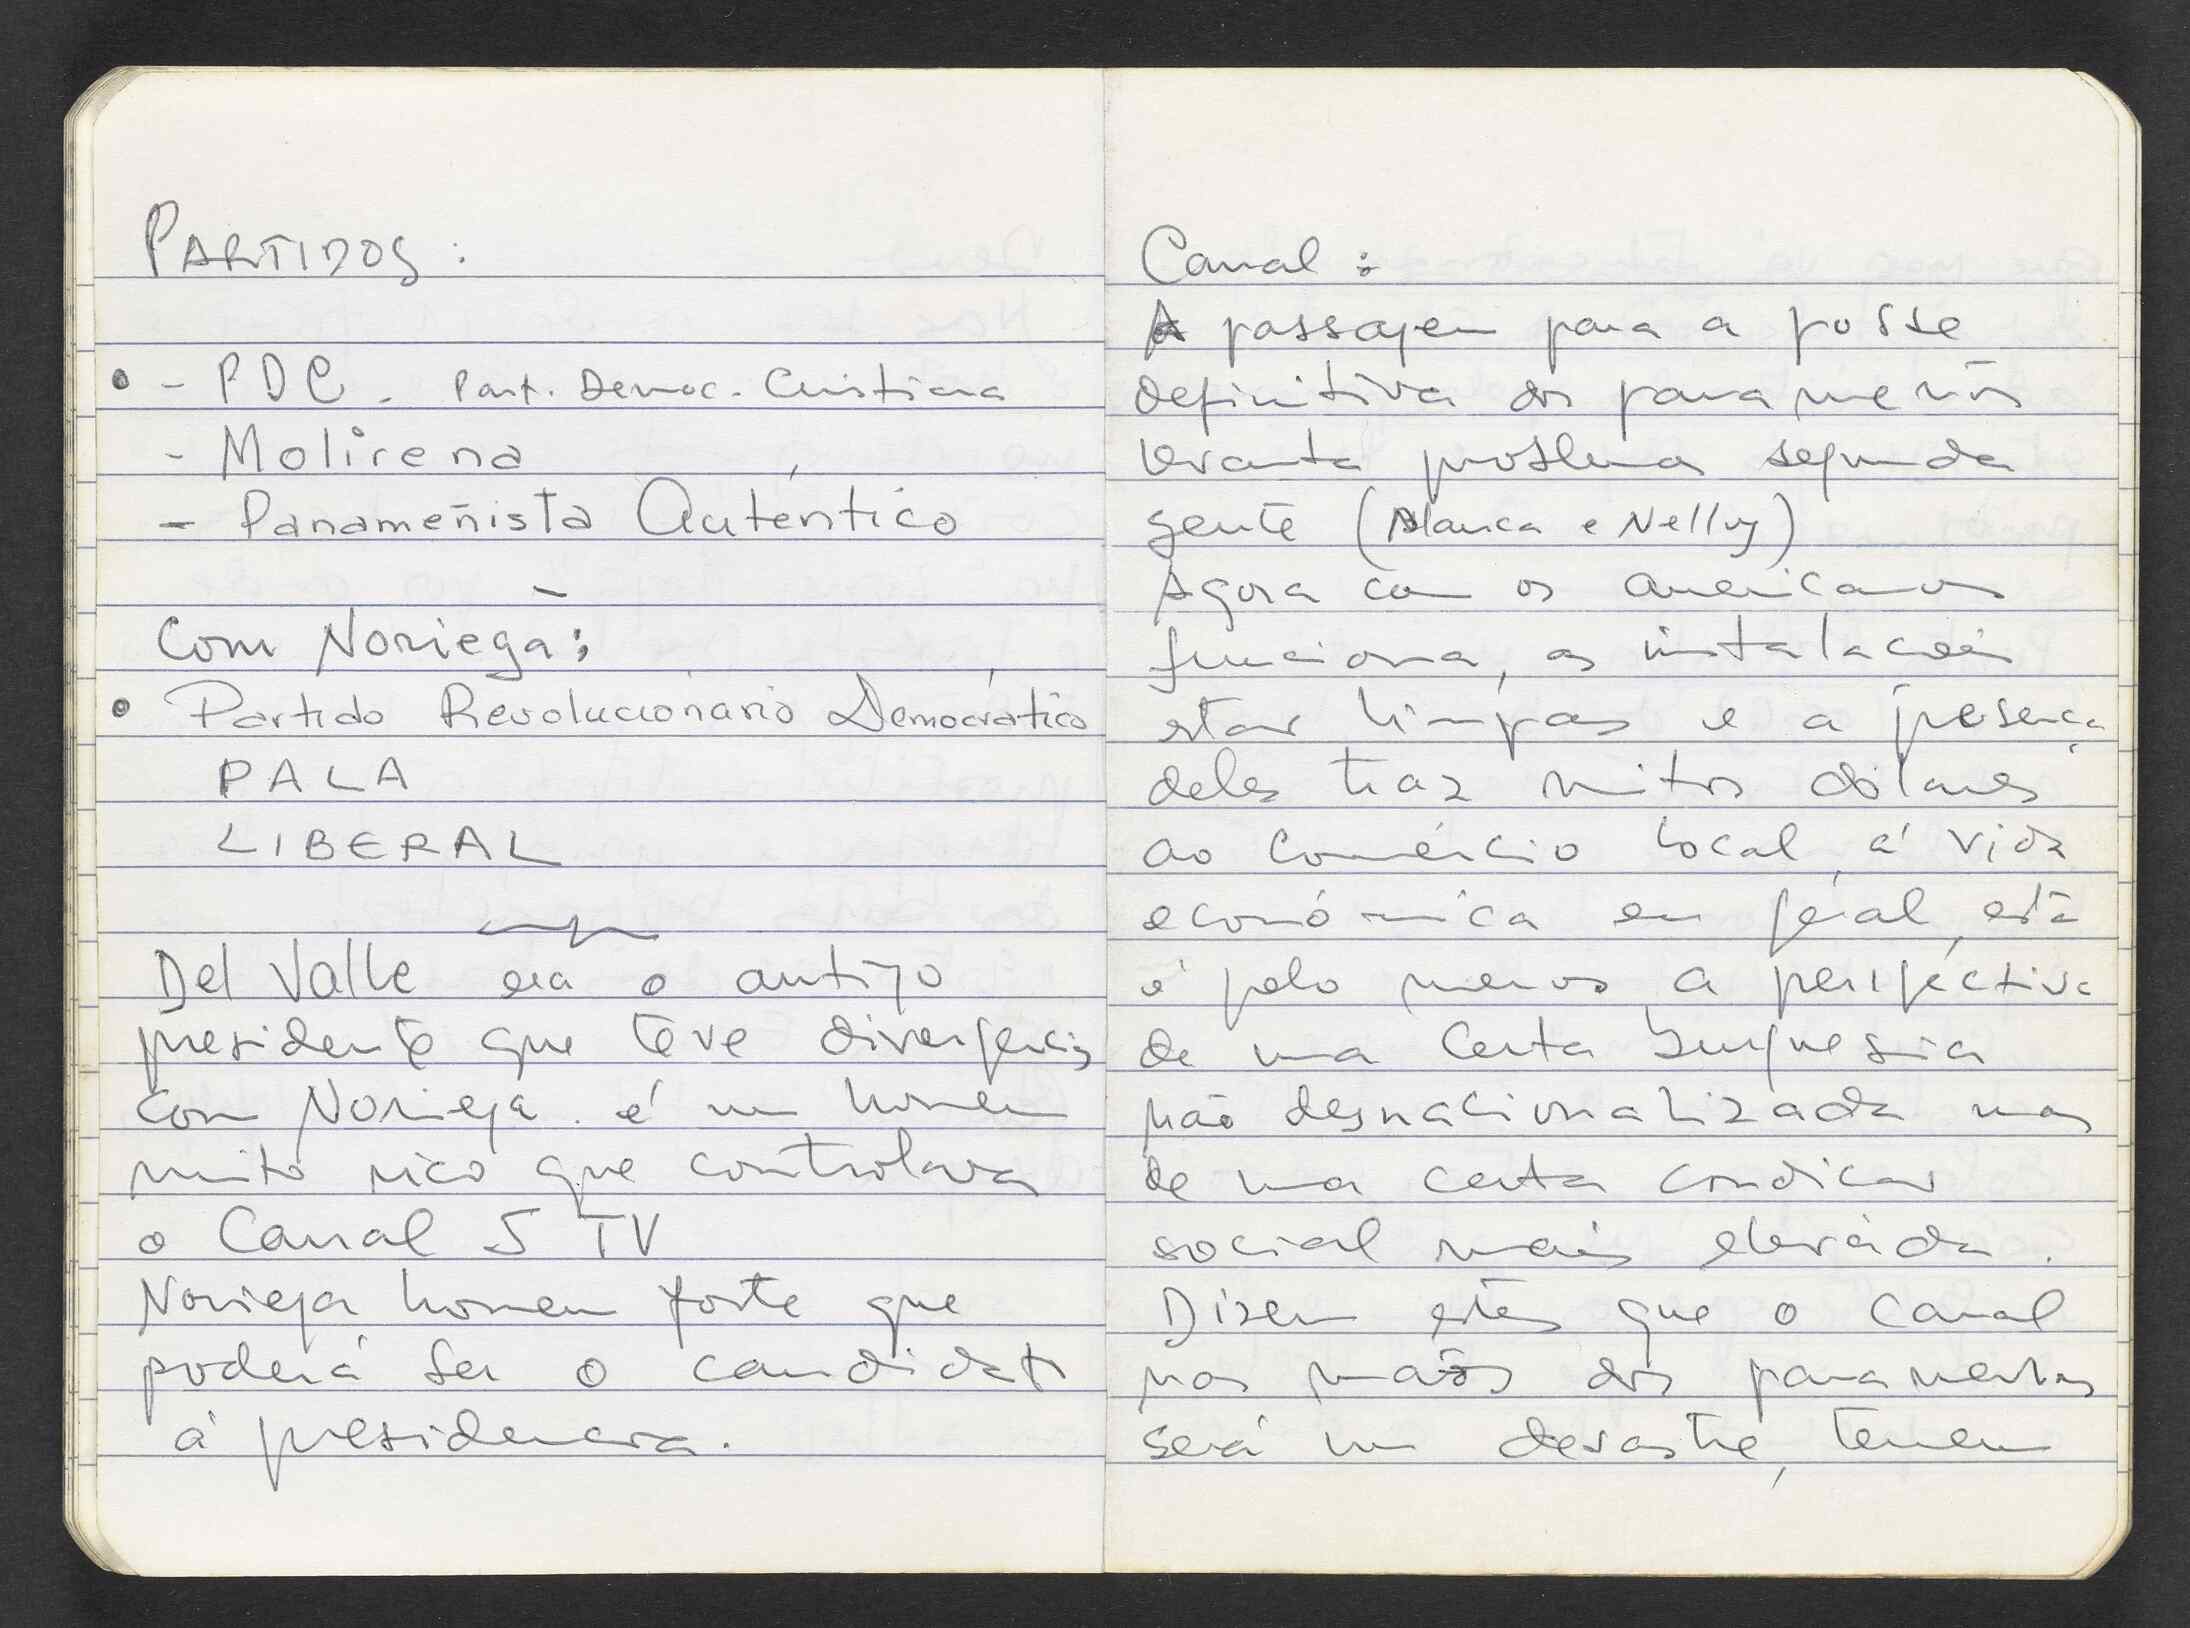 PARTIDOS:
• - PDC. Part. Democ. Cristiana
- Molirena
- Panameñista Auténtico
Com Noriega:
• Partido Revolucionário Democrático
PALA
LIBERAL
Del Valle era o antigo
presidente que teve divergencias
com Noriega. é um homem
muito rico que controlava
o Canal 5 TV
Noriega homem forte que
poderá ser o candidato
á presidencia.
Canal:
A passagem para a posse
definitiva dos panamenos
levanta problemas segundo
gente (Blanca e Nelly)
Agora com os americanos
funciona, as instalacões
estão limpas e a presença
deles traz muitos dólares
ao comércio local, á vida
económica em geral, esta
é pelo menos a perspéctiva
de uma certa burguesia
não desnacionalizada mas
de uma certa condicão
social mais elevada.
Dizem estes que o canal
nas mãos dos panamenhos
será um desastre, temem